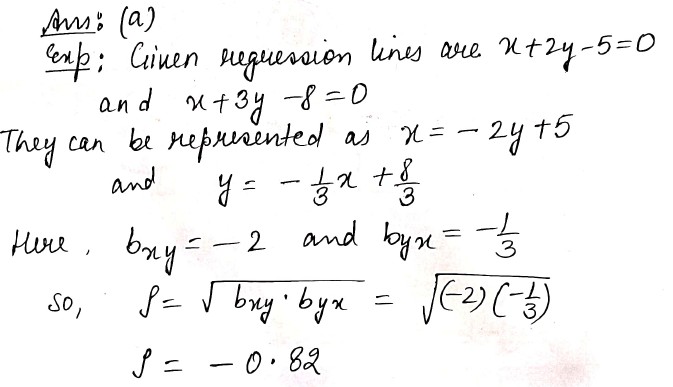 Ans: (a)
Exp: Given regression lines are x+2y-5=0
and x+3y-8=0
They can be represented as x = -2y+5
and y = -1/3 x + 8/3
Here, bxy = -2 and byx = -1/3
so, ρ = √(bxy · byx) = √((-2)(-1/3))
ρ = -0.82